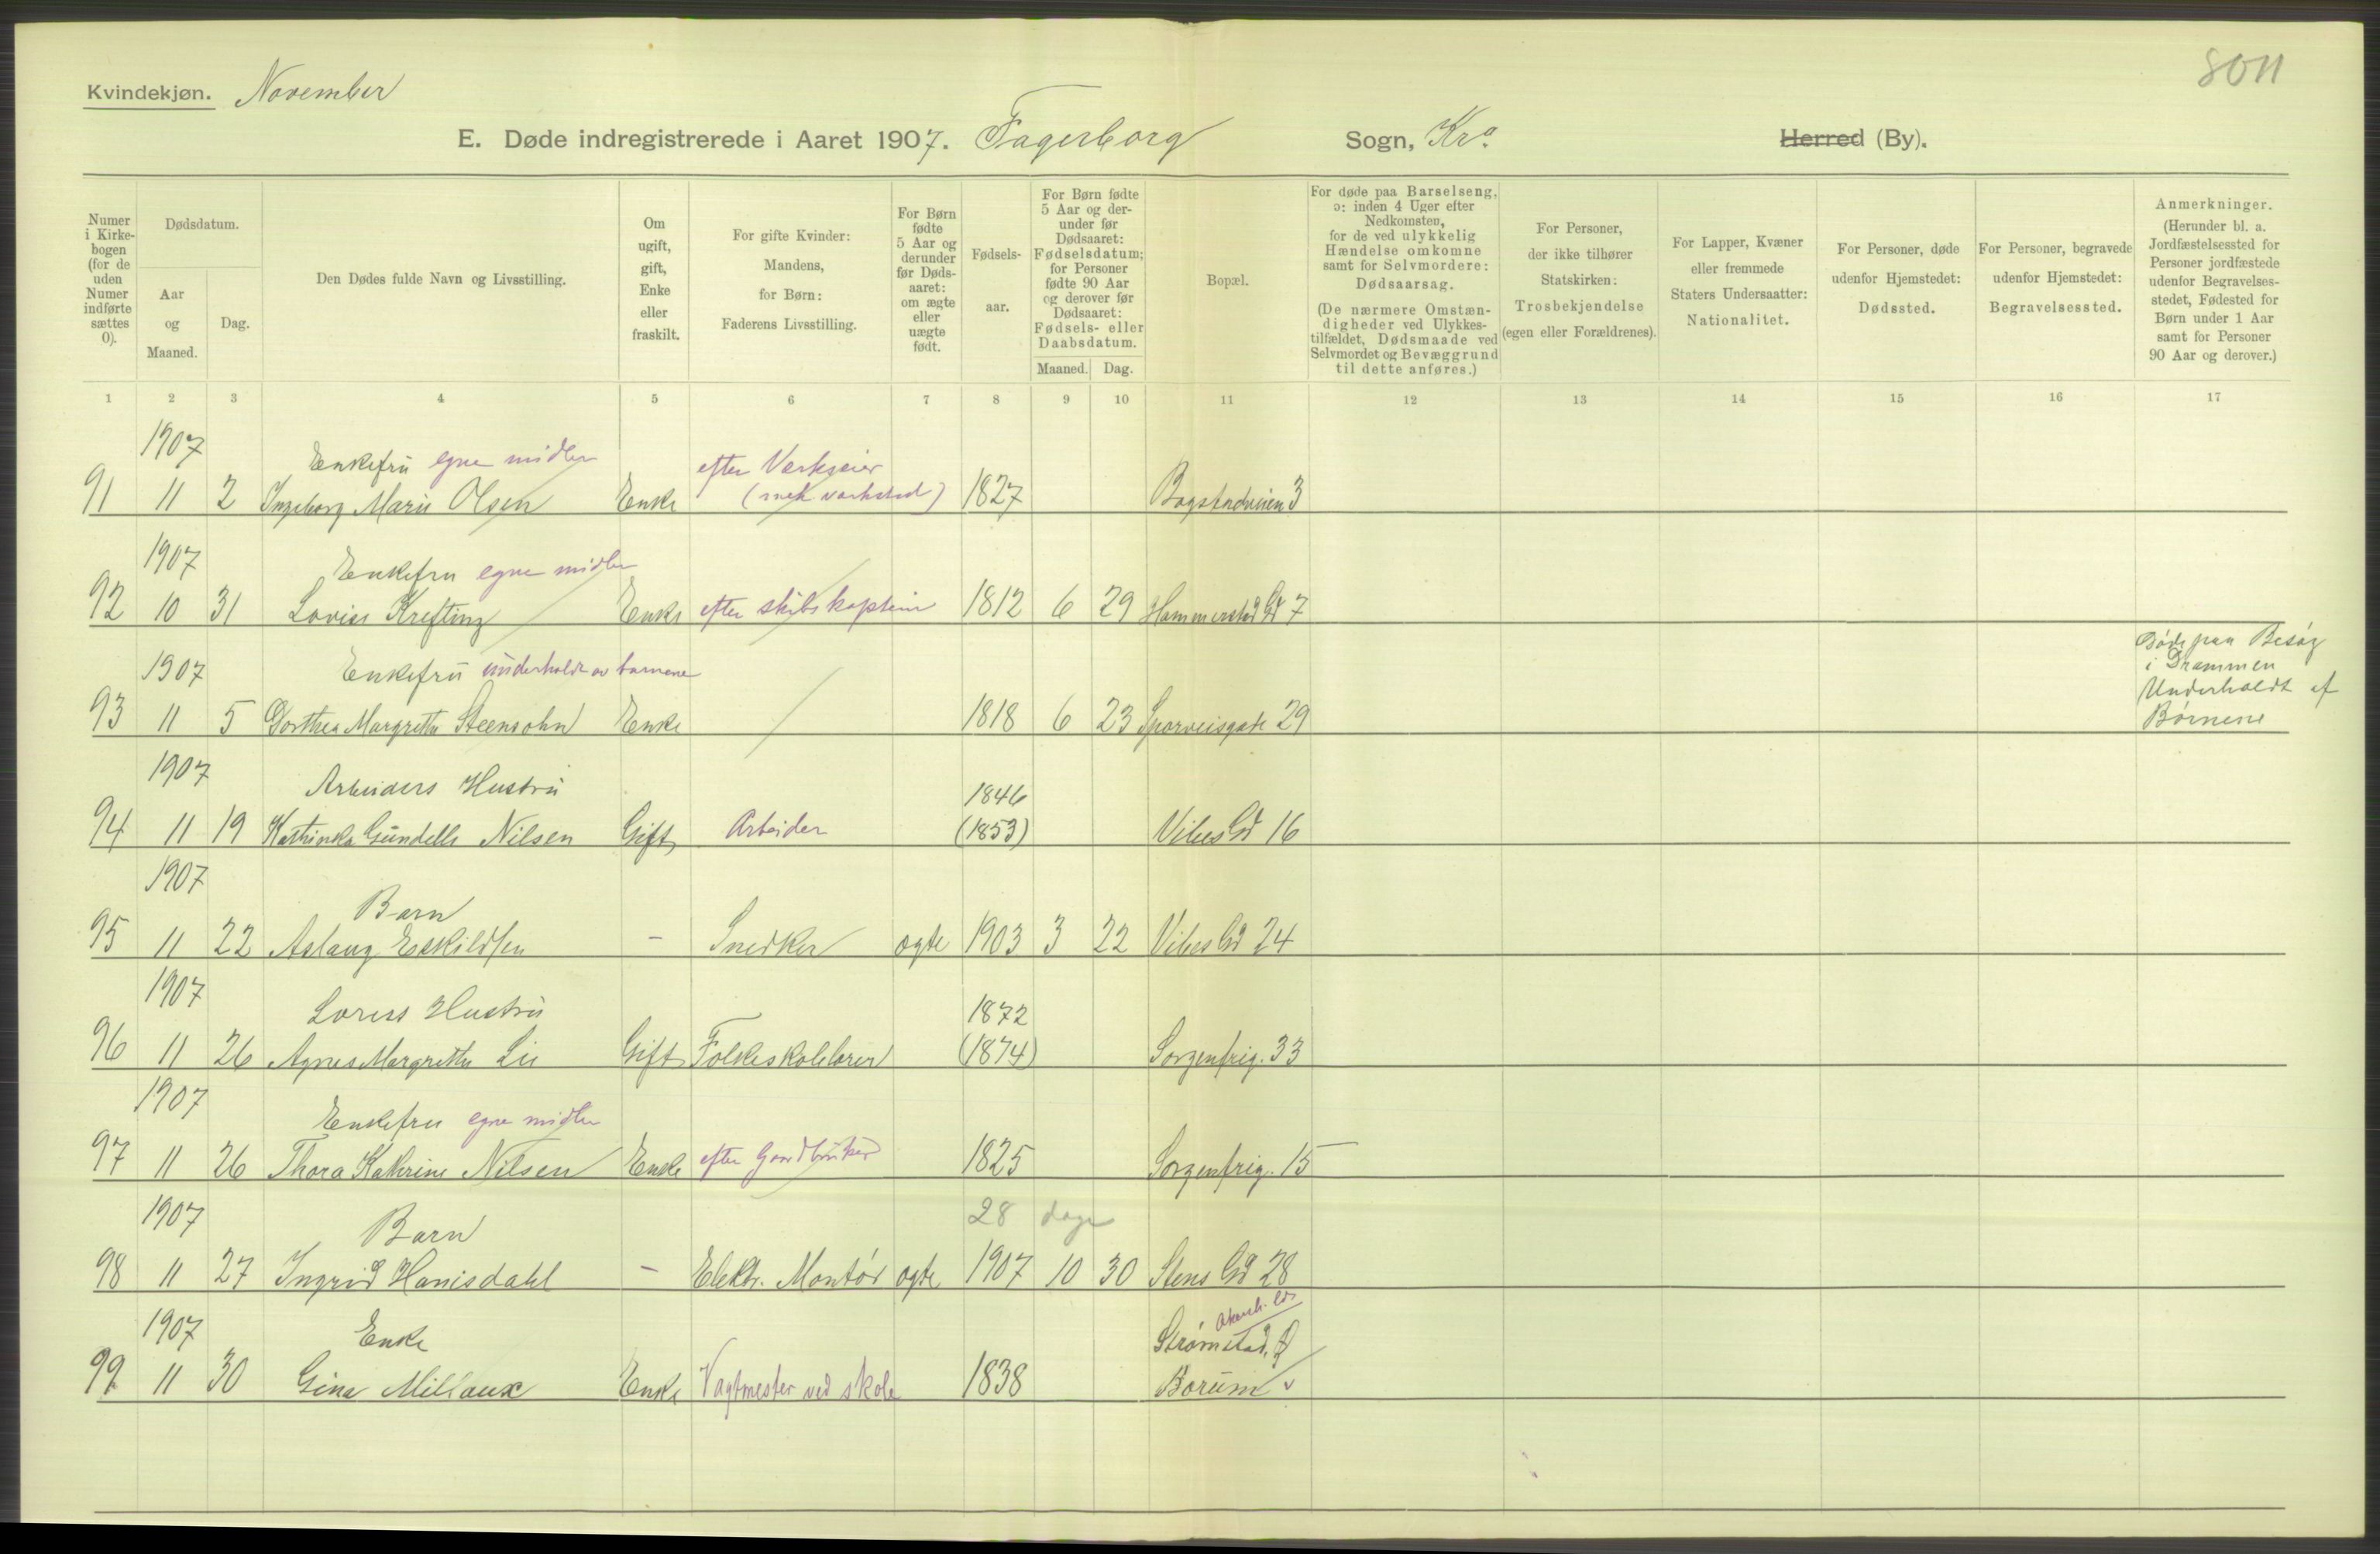 8011
Kvindekjøn. November
E. Døde indregistrerede i Aaret 1907. Fagerborg Sogn, Kra. Herred (By).
Numer i Kirkebogen (for de uden Numer indførte sættes 0).
Dødsdatum.
Aar og Maaned.
Dag.
Den Dødes fulde Navn og Livsstilling.
Om ugift, gift, Enke eller fraskilt.
For gifte Kvinder: Mandens, for Børn: Faderens Livsstilling.
For Børn fødte 5 Aar og derunder før Dødsaaret: om ægte eller uægte født.
Fødselsaar.
For Børn fødte 5 Aar og derunder før Dødsaaret: Fødselsdatum; for Personer fødte 90 Aar og derover før Dødsaaret: Fødsels- eller Daabsdatum.
Maaned. Dag.
Bopæl.
For døde paa Barselseng, ɔ: inden 4 Uger efter Nedkomsten, for de ved ulykkelig Hændelse omkomne samt for Selvmordere: Dødsaarsag.
(De nærmere Omstændigheder ved Ulykkestilfældet, Dødsmaade ved Selvmordet og Bevæggrund til dette anføres.)
For Personer, der ikke tilhører Statskirken: Trosbekjendelse (egen eller Forældrenes).
For Lapper, Kvæner eller fremmede Staters Undersaatter: Nationalitet.
For Personer, døde udenfor Hjemstedet: Dødssted.
For Personer, begravede udenfor Hjemstedet: Begravelsessted.
Anmerkninger. (Herunder bl. a. Jordfæstelsessted for Personer jordfæstede udenfor Begravelsesstedet, Fødested for Børn under 1 Aar samt for Personer 90 Aar og derover.)
1 2 3 4 5 6 7 8 9 10 11 12 13 14 15 16 17
1907 Enkefru egne midler efter Værkseier
91 11 2 Ingeborg Marie Olsen Enke (mek værksted) 1827 Bogstadveien 3
1907 Enkefru egne midler
92 10 31 Lovise Krefting Enke efter skibskaptein 1812 6 29 Hammerstad Gd 7
1907 Enkefru underholdt av barnene
93 11 5 Dorthea Margrethe Steensohn Enke 1818 6 23 Sporveisgade 29
Døde paa Besøg
i Drammen
Underholdt af
Børnene
1907 Arbeiders Hustru 1846
94 11 19 Kathinka Gundelle Nilsen Gift Arbeider (1853) Vibes Gd 16
1907 Barn
95 11 22 Aslaug Eskildsen - Snedker ægte 1903 3 22 Vibes Gd 24
1907 Lærers Hustru 1872
96 11 26 Agnes Margrethe Lie Gift Folkeskolelærer (1874) Sorgenfrig. 33
1907 Enkefru egne midler
97 11 26 Thora Kathrine Nilsen Enke efter Gaardbruker 1825 Sorgenfrig. 15
1907 Barn 28 dage
98 11 27 Ingrid Hanisdahl - Elektr. Montør ægte 1907 10 30 Stens Gd 28
1907 Enke Strømstad,
99 11 30 Gina Millaux Enke Vagtmester ved skole 1838 Bærum